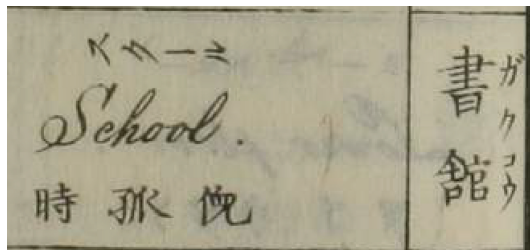 スクール
School.
時 孤
書館
ガクコウ